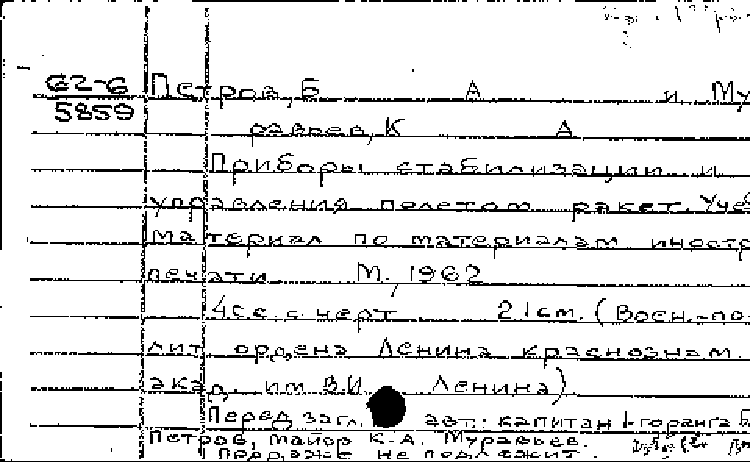 62-6 Петров, Б А и Му
5859
равьев, К А
Приборы стабилизации и
управления полетом ракет. Учеб
материал по материалам иностр
печати М., 1962
4с.с. с черт 21см. (Воен.-по-
лит. ордена Ленина краснознам.
акад. им В.И. Ленина)
Перед загл. авт.: капитан 1-го ранга Б
Петров, майор К.А. Муравьев.
Продаже не подлежит.